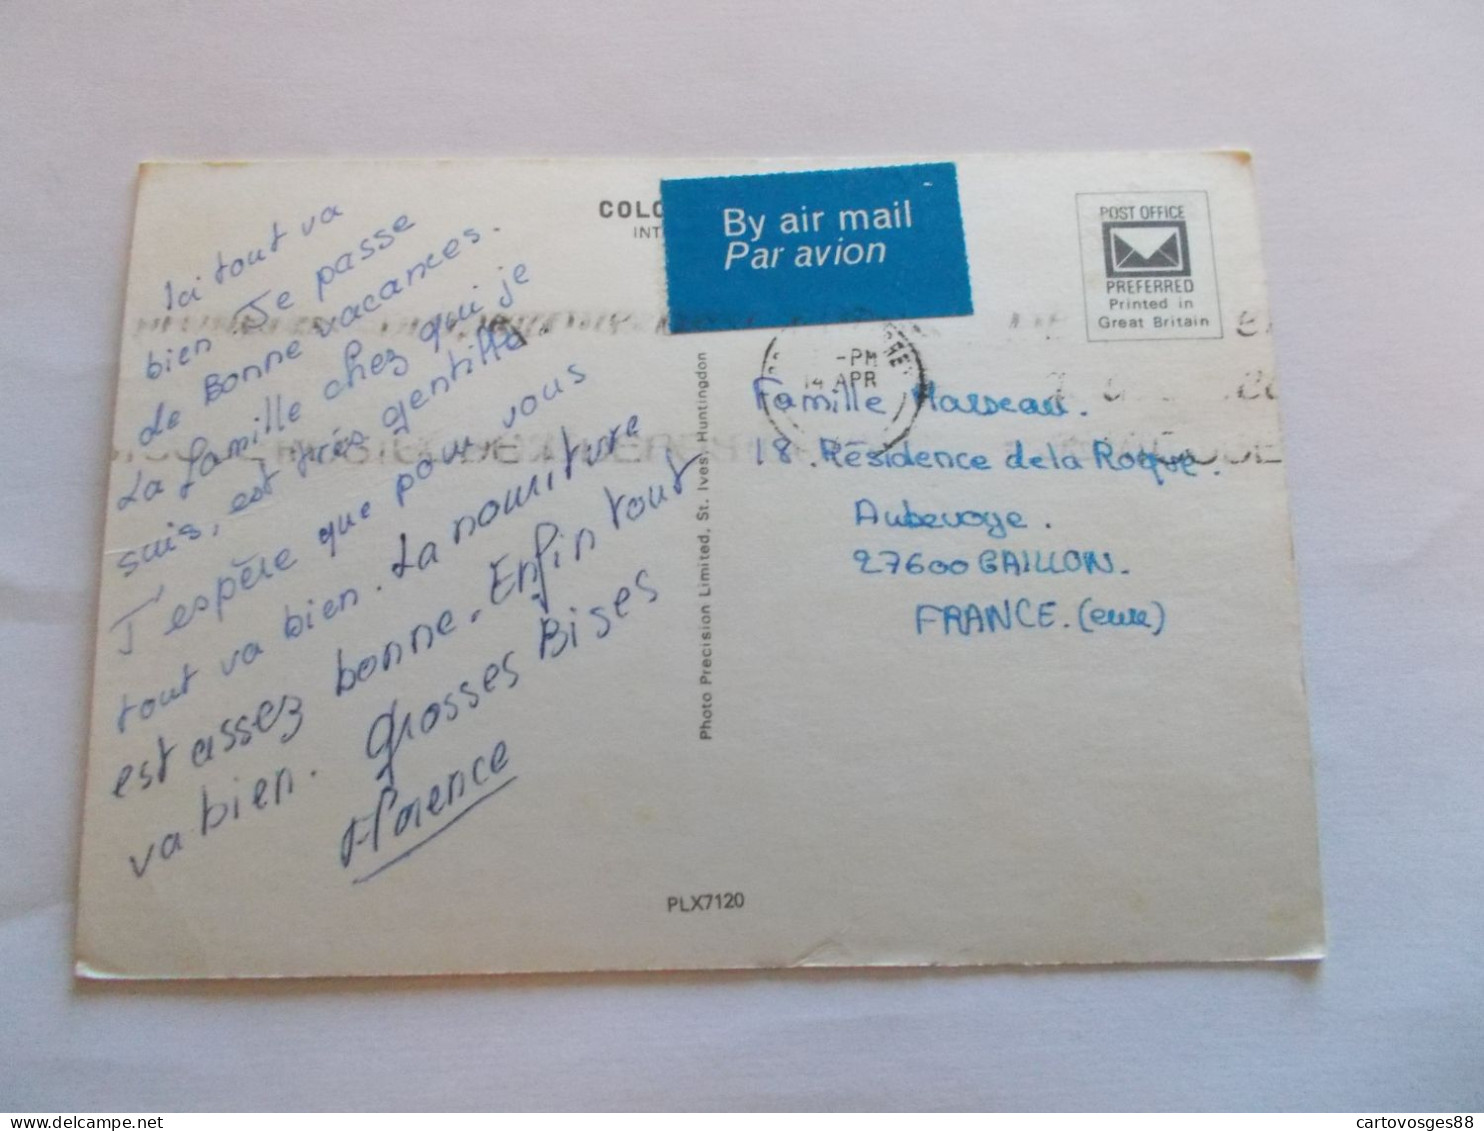 Ici tout va
bien Je passe
de Bonne vacances.
La famille chez qui je
suis, est très gentille
J'espère que pour vous
tout va bien. La nourriture
est assez bonne. Enfin tout
va bien. grosses Bises
Florence
COLO
INT
By air mail
Par avion
POST OFFICE
PREFERRED
Printed in
Great Britain
-PM
14 APR
Famille Marseau.
18. Résidence de la Roque.
Aubevoye.
27600 GAILLON.
FRANCE. (eure)
Photo Precision Limited, St. Ives, Huntingdon
PLX7120
cartovosges88